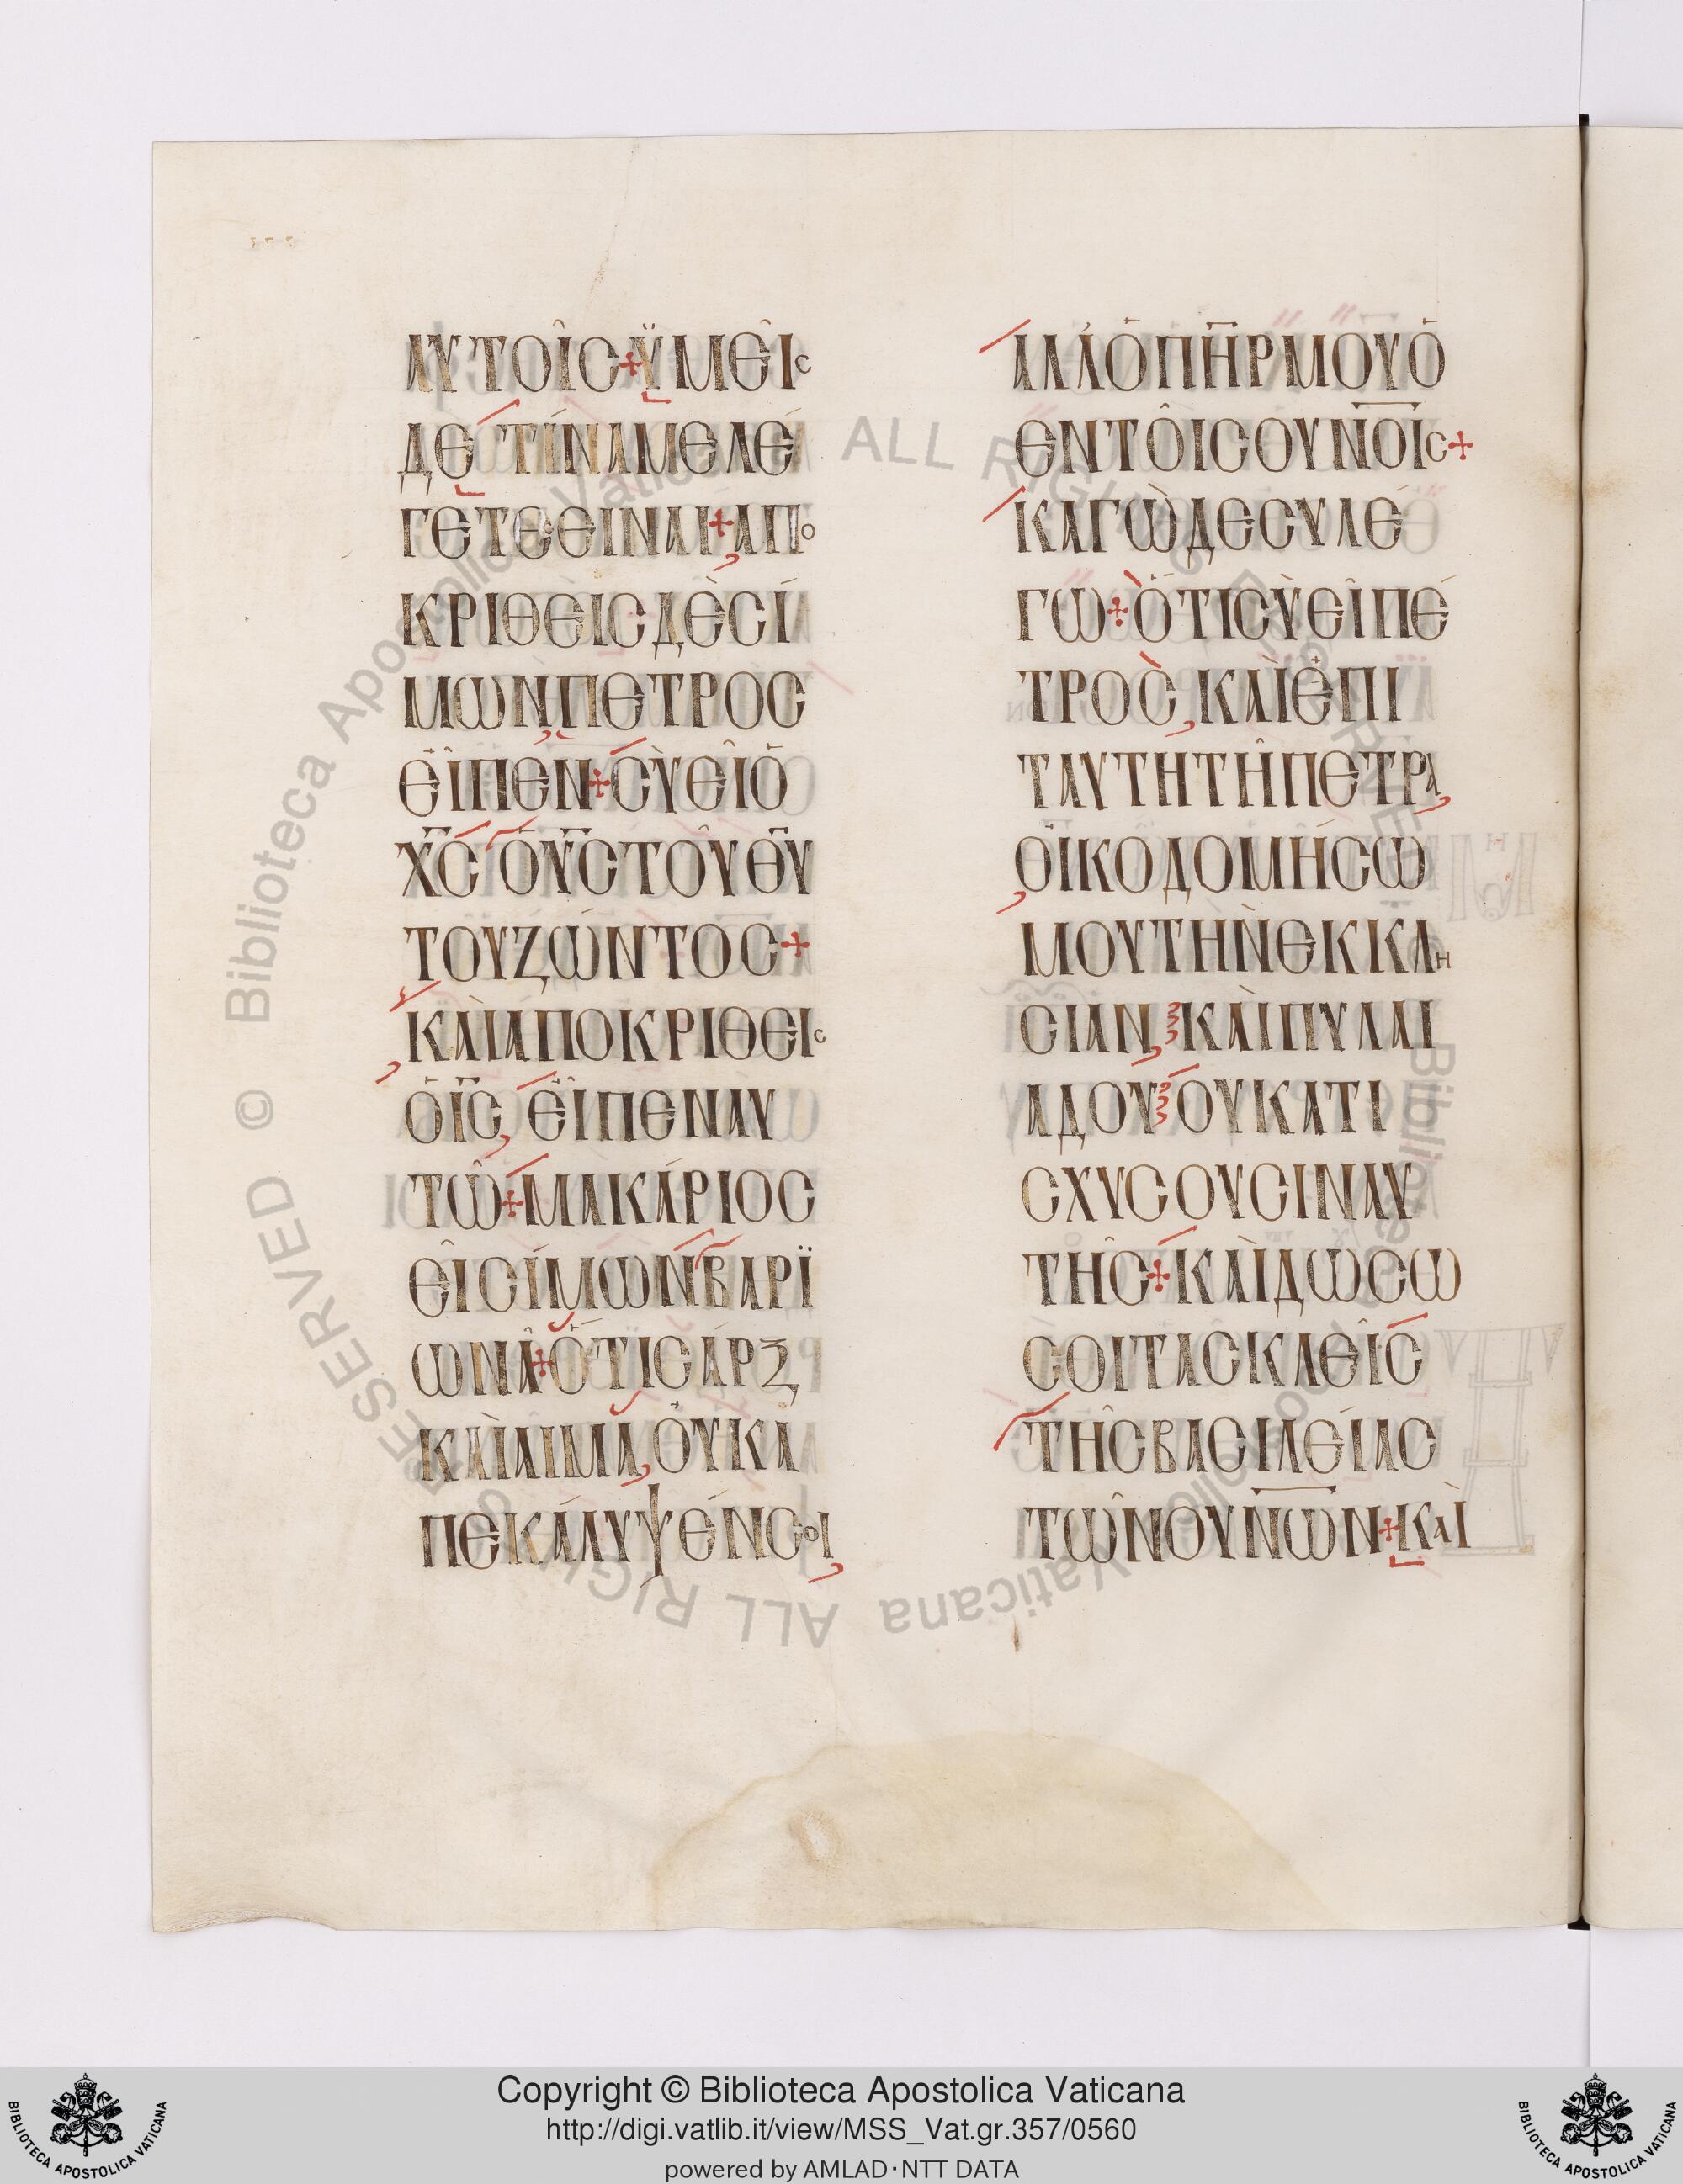 ΑΥΤΟῖC+ΫΜΕῖC
ΔΕ ΤΊΝΑΜΕΛΈ
ΓΕΤΕΕΙΝΑΙ+ΑΠΟ
ΚΡΙΘΕΙCΔῈCΊ
ΜΩΝΠΕΤΡΟC
ΕἾΠΕΝ+CῪΕῖὉ
Χ̅C̅ὉΥ̅C̅ΤΟῦΘ̅Υ̅
ΤΟΥΖΏΝΤΟC+
ΚΑῚΑΠΟΚΡΙΘΕΙC
ὉΙ̅C̅, ΕἾΠΕΝΑΥ
Τῶ+ΜΑΚΆΡΙΟC
ΕῖCΊΜΩΝΒΑΡΪ
ΩΝᾶ+ὍΤΙCΆΡΞ
ΚΑῚΑΙΜΑ,ΟὐΚΑ
ΠΕΚΆΛΥΨΈΝCΟΙ,
ΑΛΛ̓ὉΠ̅Η̅ΡΜΟΥὉ
ΕΝΤΟῖCΟΥΝ̅Ο̅Ι̅C+
ΚΑΓῺΔΕCΥΛΈ
ΓΩ+ὍΤΙCῪΕῖΠΈ
ΤΡΟC,ΚΑῚἘΠΙ
ΤΑΥΤΗΤῆΠΕΤΡΑ,
ΟἰΚΟΔΟΜΉCΩ
ΜΟΥΤῊΝΕΚΚΛΗ
CΙΑΝ,ΚΑῚΠΥΛΑΙ
ΑΔΟΥ ΟΥΚΑΤΙ
CΧΥCΟΥCΙΝΑΥ
ΤῆC+ΚΑῚΔΩCΩ
CΟΙΤΑCΚΛΕῖC
ΤῆCΒΑCΙΛΕΊΑC
ΤῶΝΟΥΝ̅Ω̅Ν+ΚΑῚ
Copyright © Biblioteca Apostolica Vaticana
http://digi.vatlib.it/view/MSS_Vat.gr.357/0560
powered by AMLAD·NTT DATA
BIBLIOTECA APOSTOLICA VATICANA
BIBLIOTECA APOSTOLICA VATICANA